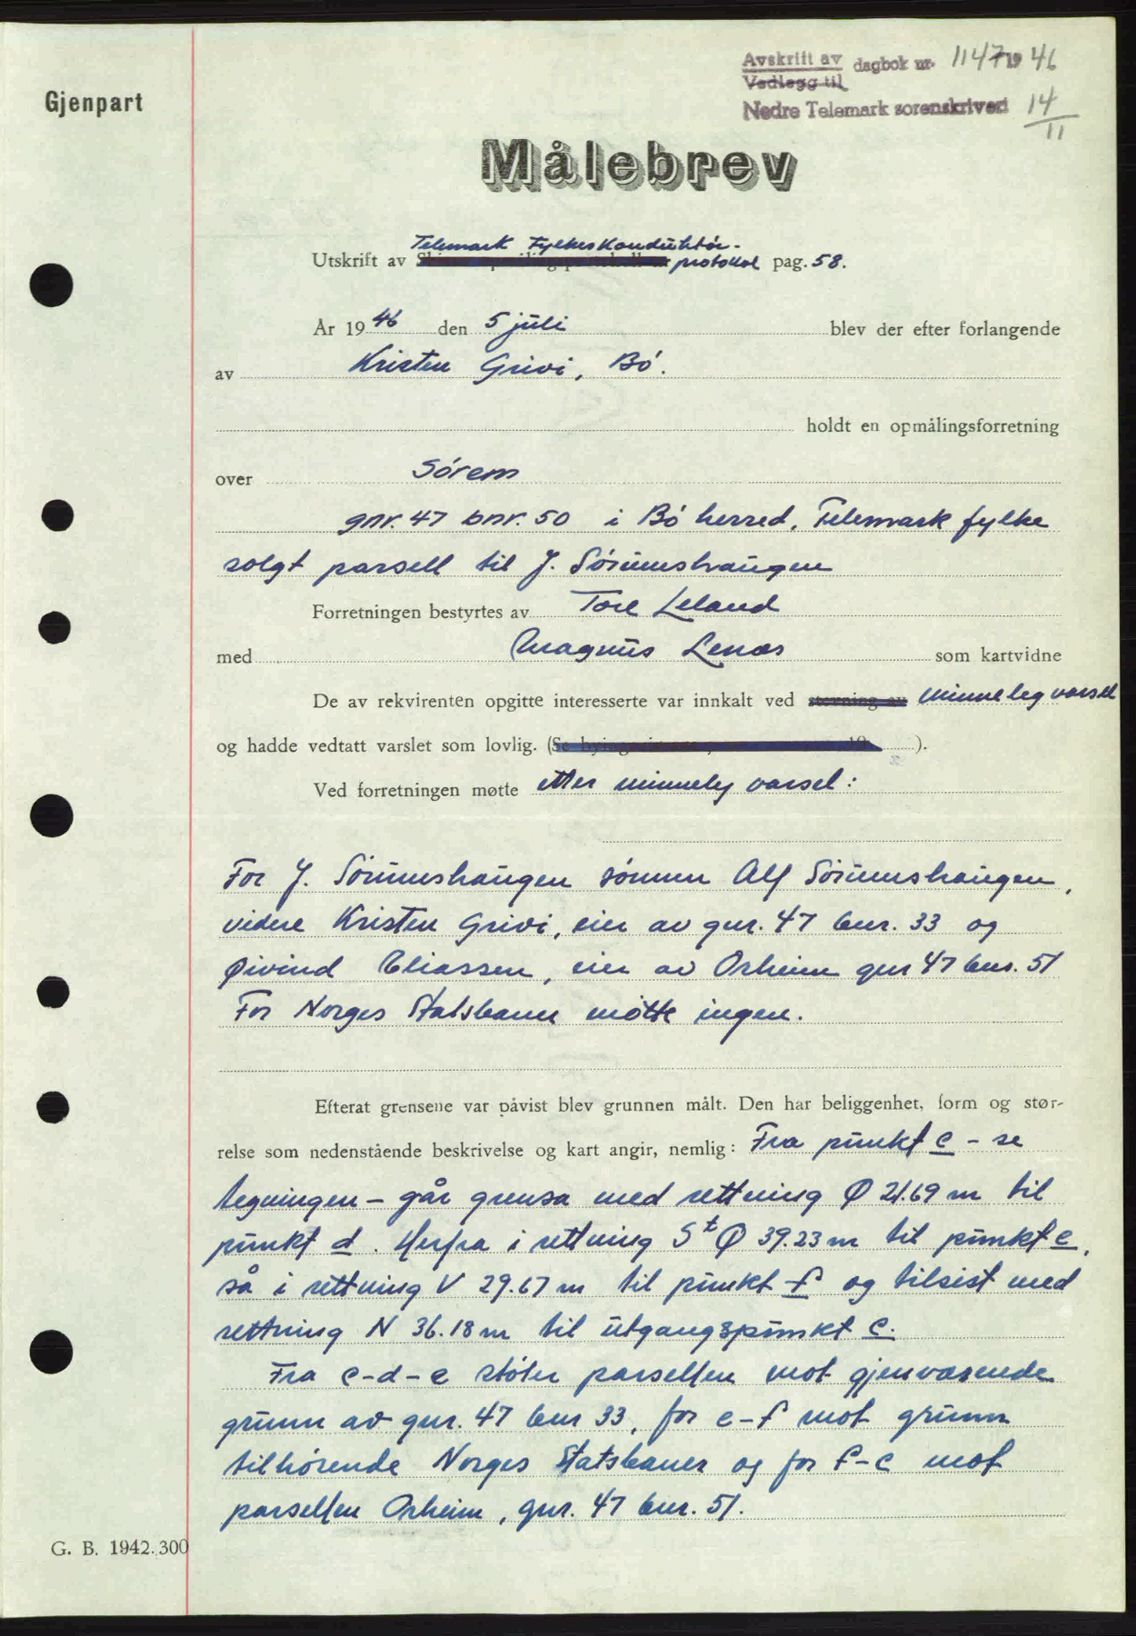 Avskrift av dagbok nr. 1147 1946
Vedlegg til
Nedre Telemark sorenskriveri 14/11
Gjenpart
Målebrev
Telemark Fylkeskonduktør-
Utskrift av protokol pag. 58.
År 1946 den 5 juli blev der efter forlangende
av Kristen Grivi, Bø.
holdt en opmålingsforretning
over Sørem
gnr. 47 bnr. 50 i Bø herred, Telemark fylke
solgt parsell til J. Sørumshaugen
Forretningen bestyrtes av Tore Leland
med Magnus Lenæs som kartvidne
De av rekvirenten opgitte interesserte var innkalt ved minneleg varsel
og hadde vedtatt varslet som lovlig. ( ).
Ved forretningen møtte etter minneleg varsel:
For J. Sørumshaugen sønnen Alf Sørumshaugen,
videre Kristen Grivi, eier av gnr. 47 bnr. 33 og
Øivind Eliassen, eier av Orheim gnr 47 bnr. 51
For Norges Statsbaner møtte ingen.
Efterat grensene var påvist blev grunnen målt. Den har beliggenhet, form og stør-
relse som nedenstående beskrivelse og kart angir, nemlig: Fra punkt c – se
tegningen – går grensa med rettning Ø 21.69 m til
punkt d. Herfra i rettning S t Ø 39.23 m til punkt e,
så i rettning V 29.67 m til punkt f og tilsist med
rettning N 36.18 m til utgangspunkt c.
Fra c-d-e støter parsellen mot gjenværende
grunn av gnr. 47 bnr 33, for e-f mot grunn
tilhørende Norges Statsbaner og for f-c mot
parsellen Orheim, gnr. 47 bnr. 51.
G. B. 1942.300